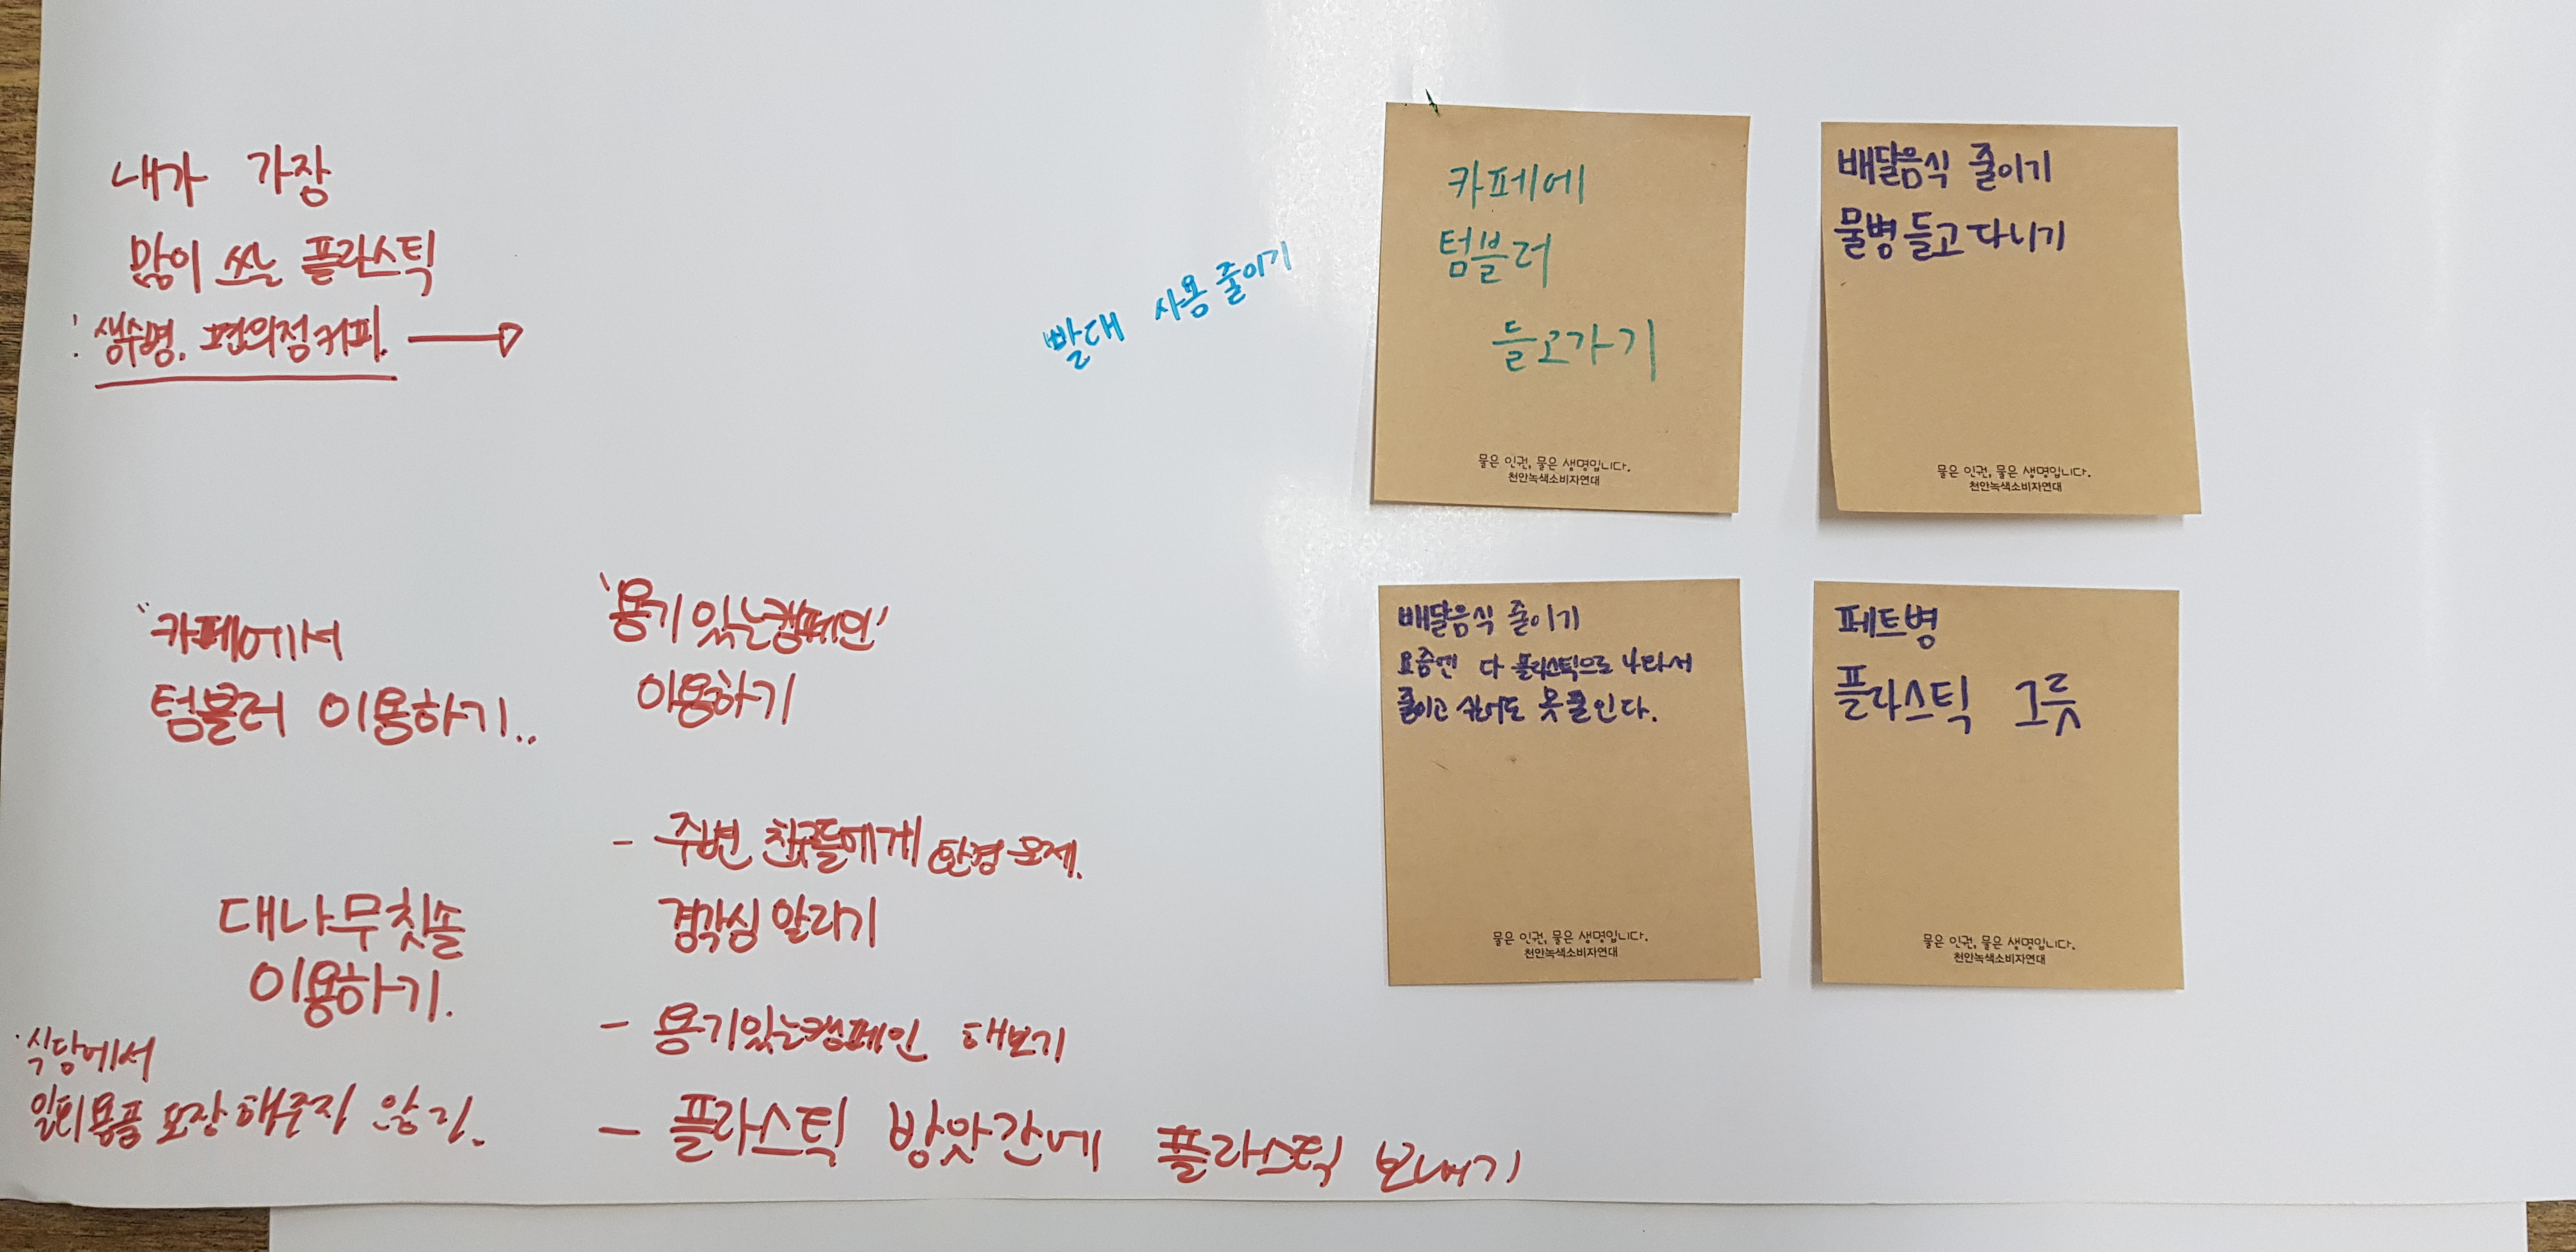 내가 가장
많이 쓰는 플라스틱
: 생수병. 편의점커피.
"카페에서
텀블러 이용하기..
대나무칫솔
이용하기.
식당에서
일회용품 포장해주지 않기.
'용기있는캠페인'
이용하기
- 주변 친구들에게 환경문제.
경각심 알리기
- 용기있는캠페인 해보기
- 플라스틱 방앗간에 플라스틱 보내기
빨대 사용 줄이기
카페에
텀블러
들고가기
물은 인권, 물은 생명입니다.
천안녹색소비자연대
배달음식 줄이기
물병 들고 다니기
물은 인권, 물은 생명입니다.
천안녹색소비자연대
배달음식 줄이기
요즘엔 다 플라스틱으로 나와서
줄이고 싶어도 못 줄인다.
물은 인권, 물은 생명입니다.
천안녹색소비자연대
페트병
플라스틱 그릇
물은 인권, 물은 생명입니다.
천안녹색소비자연대